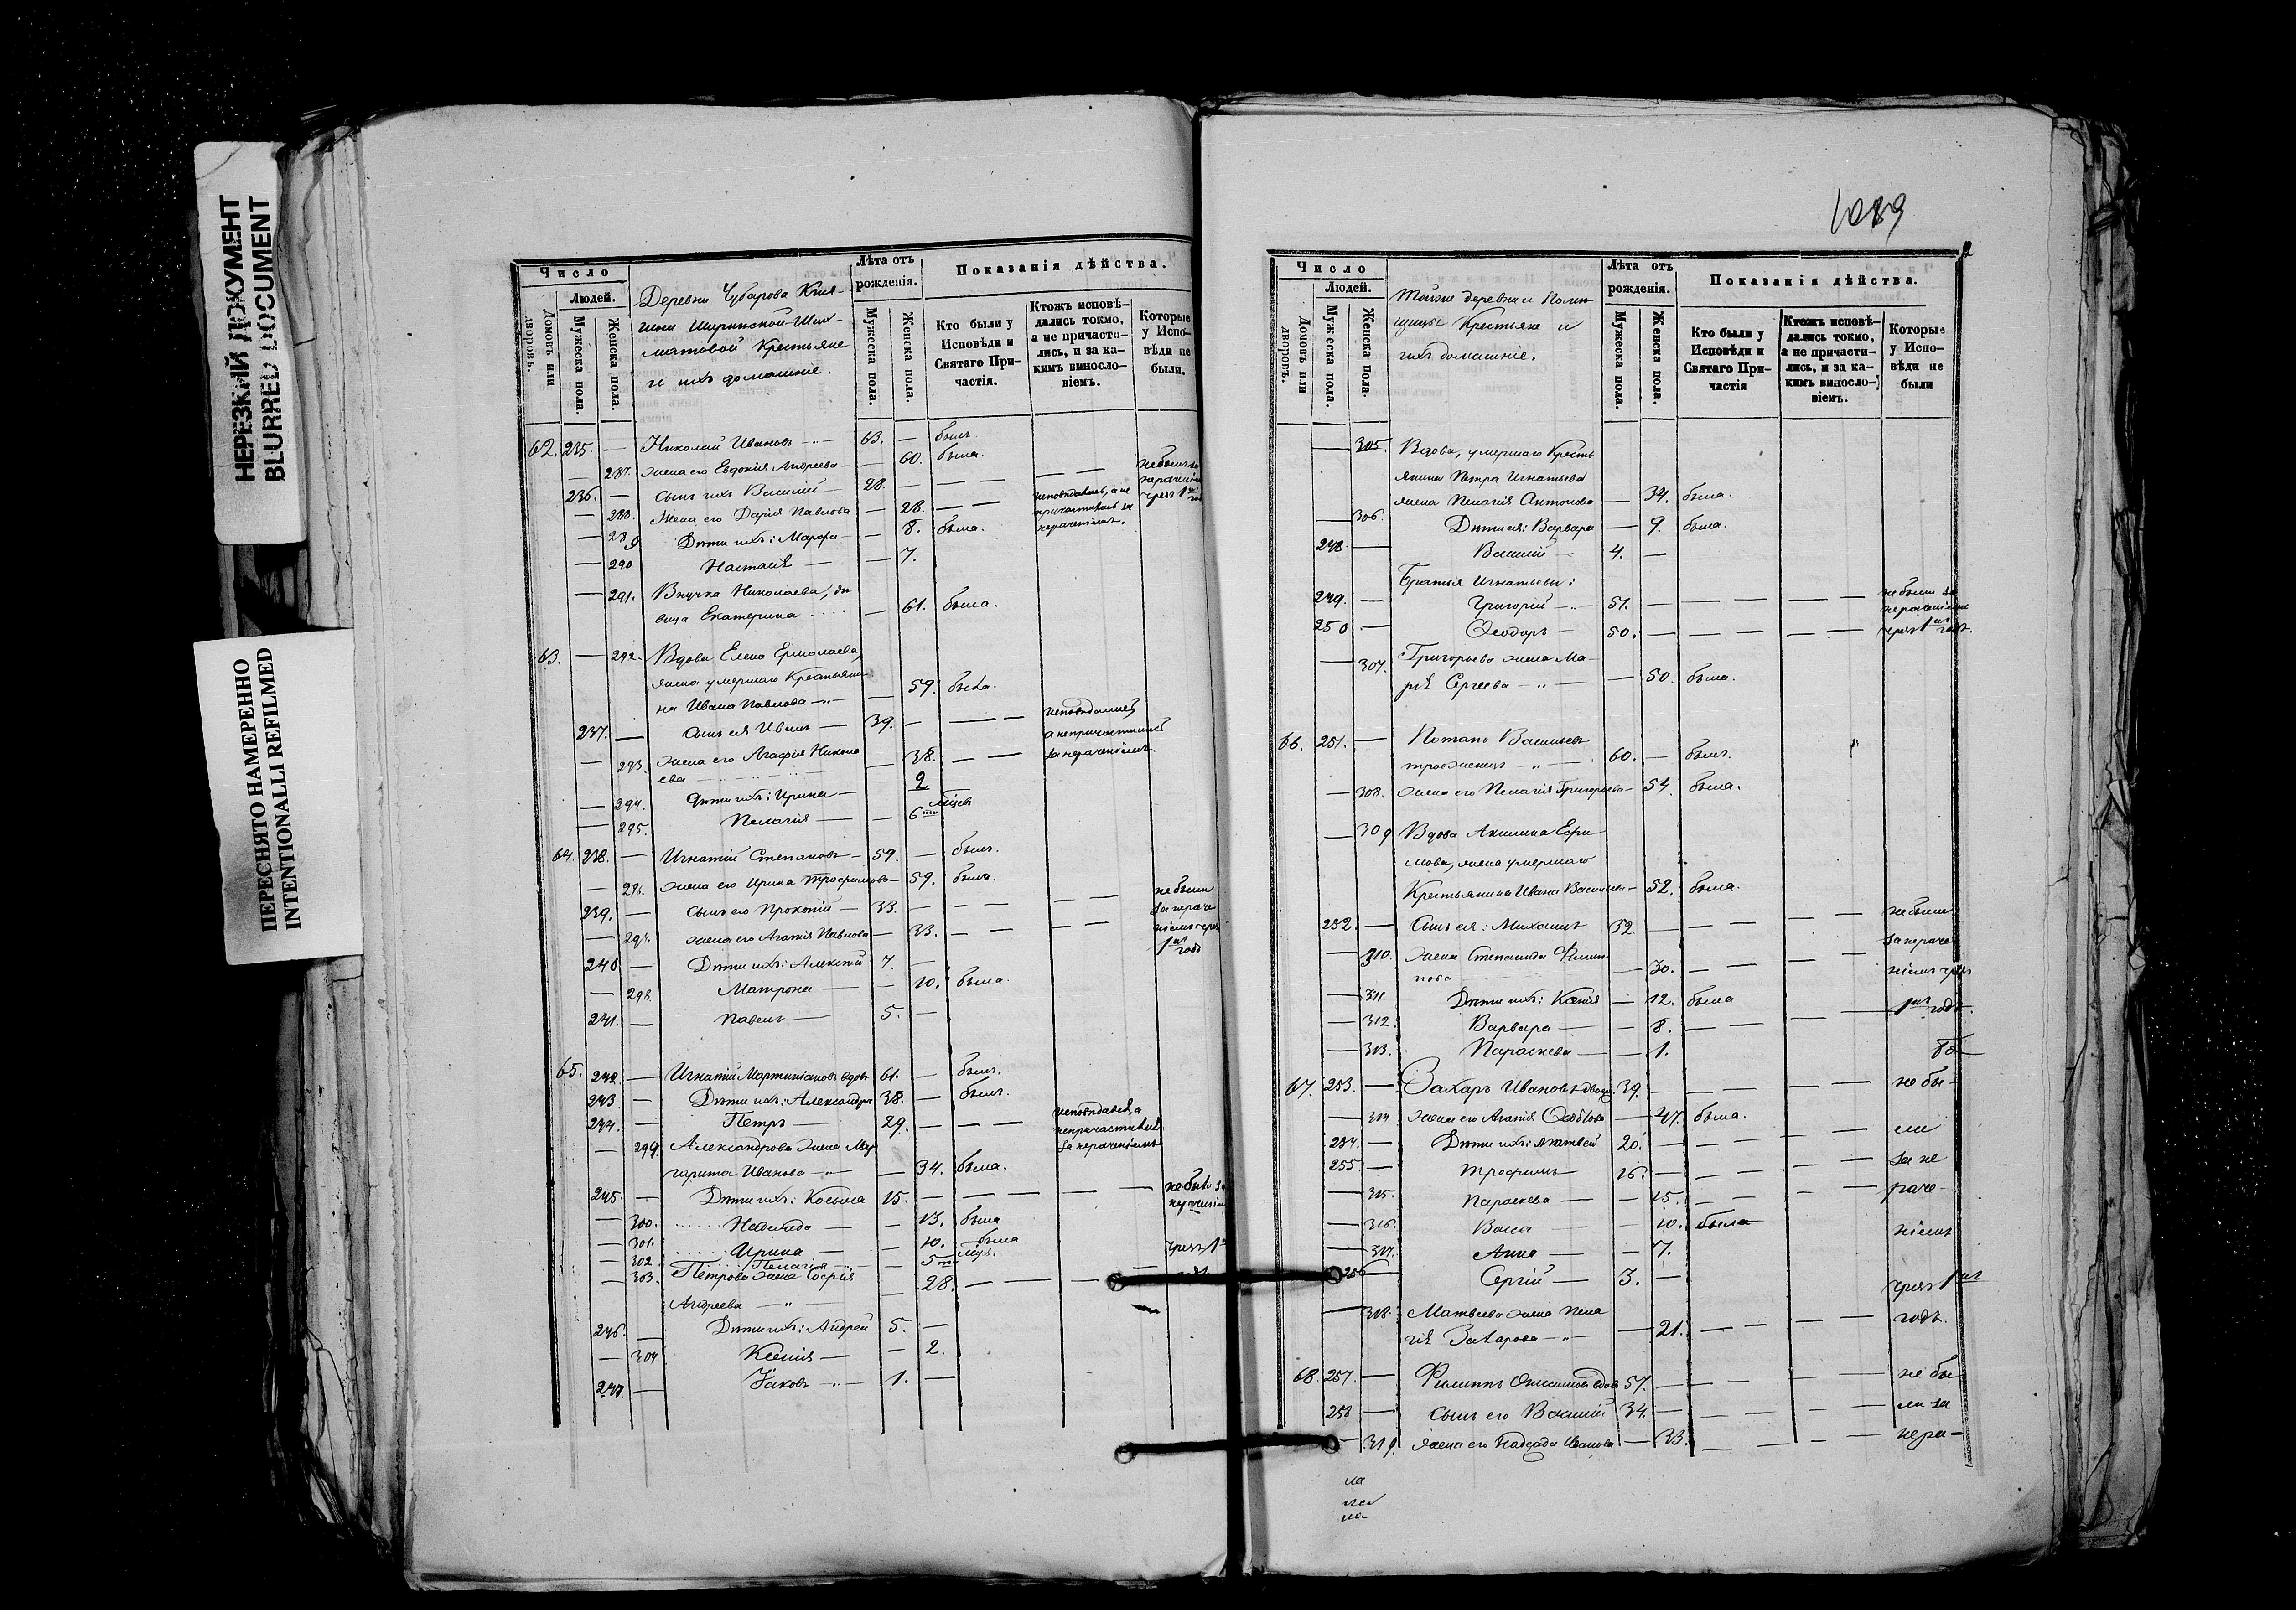 НЕРЕЗКИЙ ДОКУМЕНТ
BLURRED DOCUMENT
ПЕРЕСНЯТО НАМЕРЕННО
INTENTIONALLI REFILMED
Число
Людей.
Домовъ или дворовъ.
Мужеска пола.
Женска пола.
Деревни Чубарова Кня-
гини Ширинской-Ших-
матовой Крестьяне
и ихъ домашніе.
Лѣта отъ рожденія.
Мужеска пола.
Женска пола.
Показанія дѣйства.
Кто были у Исповѣди и Святаго При-частія.
Ктожъ исповѣ-дались токмо, а не причасти-лись, и за ка-кимъ винсло-віемъ.
Которые у Испо-вѣди не были.
62. 235. — Николай Ивановъ 63. — былъ.
— 287. жена его Евдокія Андреева — 60. была.
236. — сынъ ихъ Василій 28. — не былъ за нераченіемъ чрез 1 годъ
— 288. жена его Дарія Павлова — 28. исповѣдалась, а не причастилась за нераченіемъ.
— 289 Дѣти ихъ: Марфа — 8. была.
— 290 Настасія — 7.
— 291. Внучка Николаева, дѣ
вица Екатерина — 61. была.
63. — 292. Вдова Елена Ермолаева,
жена умершаго Крестьяни-
на Ивана Павлова — 59. была.
237. — Сынъ ея Иванъ 39. — исповѣдались,
а непричастились
за нераченіемъ.
— 293. жена его Агафія Никола
ева — 38.
— 294. Дѣти ихъ: Ирина — 9
— 295. Пелагія — 6 мцев
64. 238. — Игнатій Степановъ 59. — былъ.
— 296. жена его Ирина Трофимова — 59. была.
239. — сынъ его Прокопій 33. — не были
за нераче
ніемъ чрез
1 годъ
— 297. жена его Агафія Павлова — 33.
240 — Дѣти ихъ: Алексѣй 7. —
— 298. Матрона — 10. была.
241. — Павелъ 5. —
65. 242. — Игнатій Мартиніановъ вдовъ 61. — былъ.
243 — Дѣти ихъ: Александръ 38. — былъ.
244. — Петръ 29. — исповѣдался, а
непричастился
за нераченіемъ
— 299. Александрова жена Мар
гарита Иванова — 34. была.
245. — Дѣти ихъ: Косьма 15. — не былъ за
нераченіем
чрезъ 1
— 300. Надежда — 13. была
— 301. Ирина — 10. была
— 302. Пелагія — 5 мцъ.
— 303. Петрова жена Софія
Андреева — 28. —
246. — Дѣти ихъ: Андрей 5. —
— 304 Ксенія — 2.
247 — Іаковъ 1. —
1089
Число
Людей.
Домовъ или дворовъ.
Мужеска пола.
Женска пола.
Тойже деревни
Крестьяне и
ихъ домашніе.
Лѣта отъ рожденія.
Мужеска пола.
Женска пола.
Показанія дѣйства.
Кто были у Исповѣди и Святаго При-частія
Ктожъ исповѣ-дались токмо, а не причасти-лись, и за ка-кимъ винсло-віемъ.
Которые у Испо-вѣди не были
— 305. Вдова, умершаго Кресть
янина Петра Игнатьева
жена Пелагія Антонова — 34. была.
— 306. Дѣти ея: Варвара — 9. была.
248 — Василій 4. —
Братья Игнатьевы:
249. — Григорій 51. — не были за
нераченіемъ
чрезъ 1 годъ.
250 — Ѳеодоръ 50. —
— 307. Григорьева жена Ма-
рія Сергеева — 50. была.
66. 251. — Потапъ Васильевъ
троеженецъ 60. — былъ.
— 308. жена его Пелагія Григорьева — 54. была.
— 309 Вдова Акилина Ефи
мова, жена умершаго
Крестьянина Ивана Васильева — 52. была.
252. — Сынъ ея: Михаилъ 32 — не были
за нераче
ніемъ чрез
1 годъ.
— 310. жена Степанида Филип
пова — 30.
— 311 Дѣти ихъ: Ксенія — 12. была
— 312 Варвара — 8.
— 313. Параскева — 1.
67. 253. — Захаръ Ивановъ 39. — не бы-
ли
за не
раче
ніемъ
чрезъ 1
годъ.
— 314 жена его Агафія — 47. была.
254. — Дѣти ихъ: Матвей 20. —
255. — Трофимъ 16. —
— 315. Параскева — 15.
— 316. Васса — 10. была
— 317. Анна — 7.
256 Сергій 3. —
— 318. Матвеева жена Пела
гія Захарова — 21.
68. 257. — Филиппъ Онисимовъ вдовъ 57. — не бы
ли за
нера-
258 — сынъ его Василій 34. —
— 319. жена его Надежда Иванова — 33.